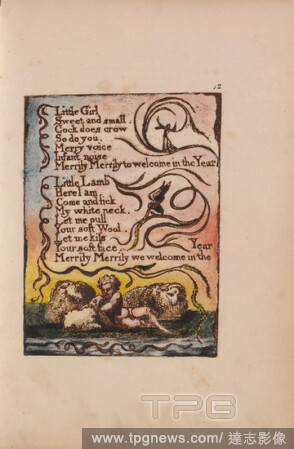 12
Little Girl
Sweet and small.
Cock does crow
So do you.
Merry voice
Infant noise
Merrily Merrily to welcome in the Year
Little Lamb
Here I am,
Come and lick
My white neck.
Let me pull
Your soft Wool.
Let me kiss
Your soft face.
Year
Merrily Merrily we welcome in the
TPG
www.tpgnews.com/達志影像